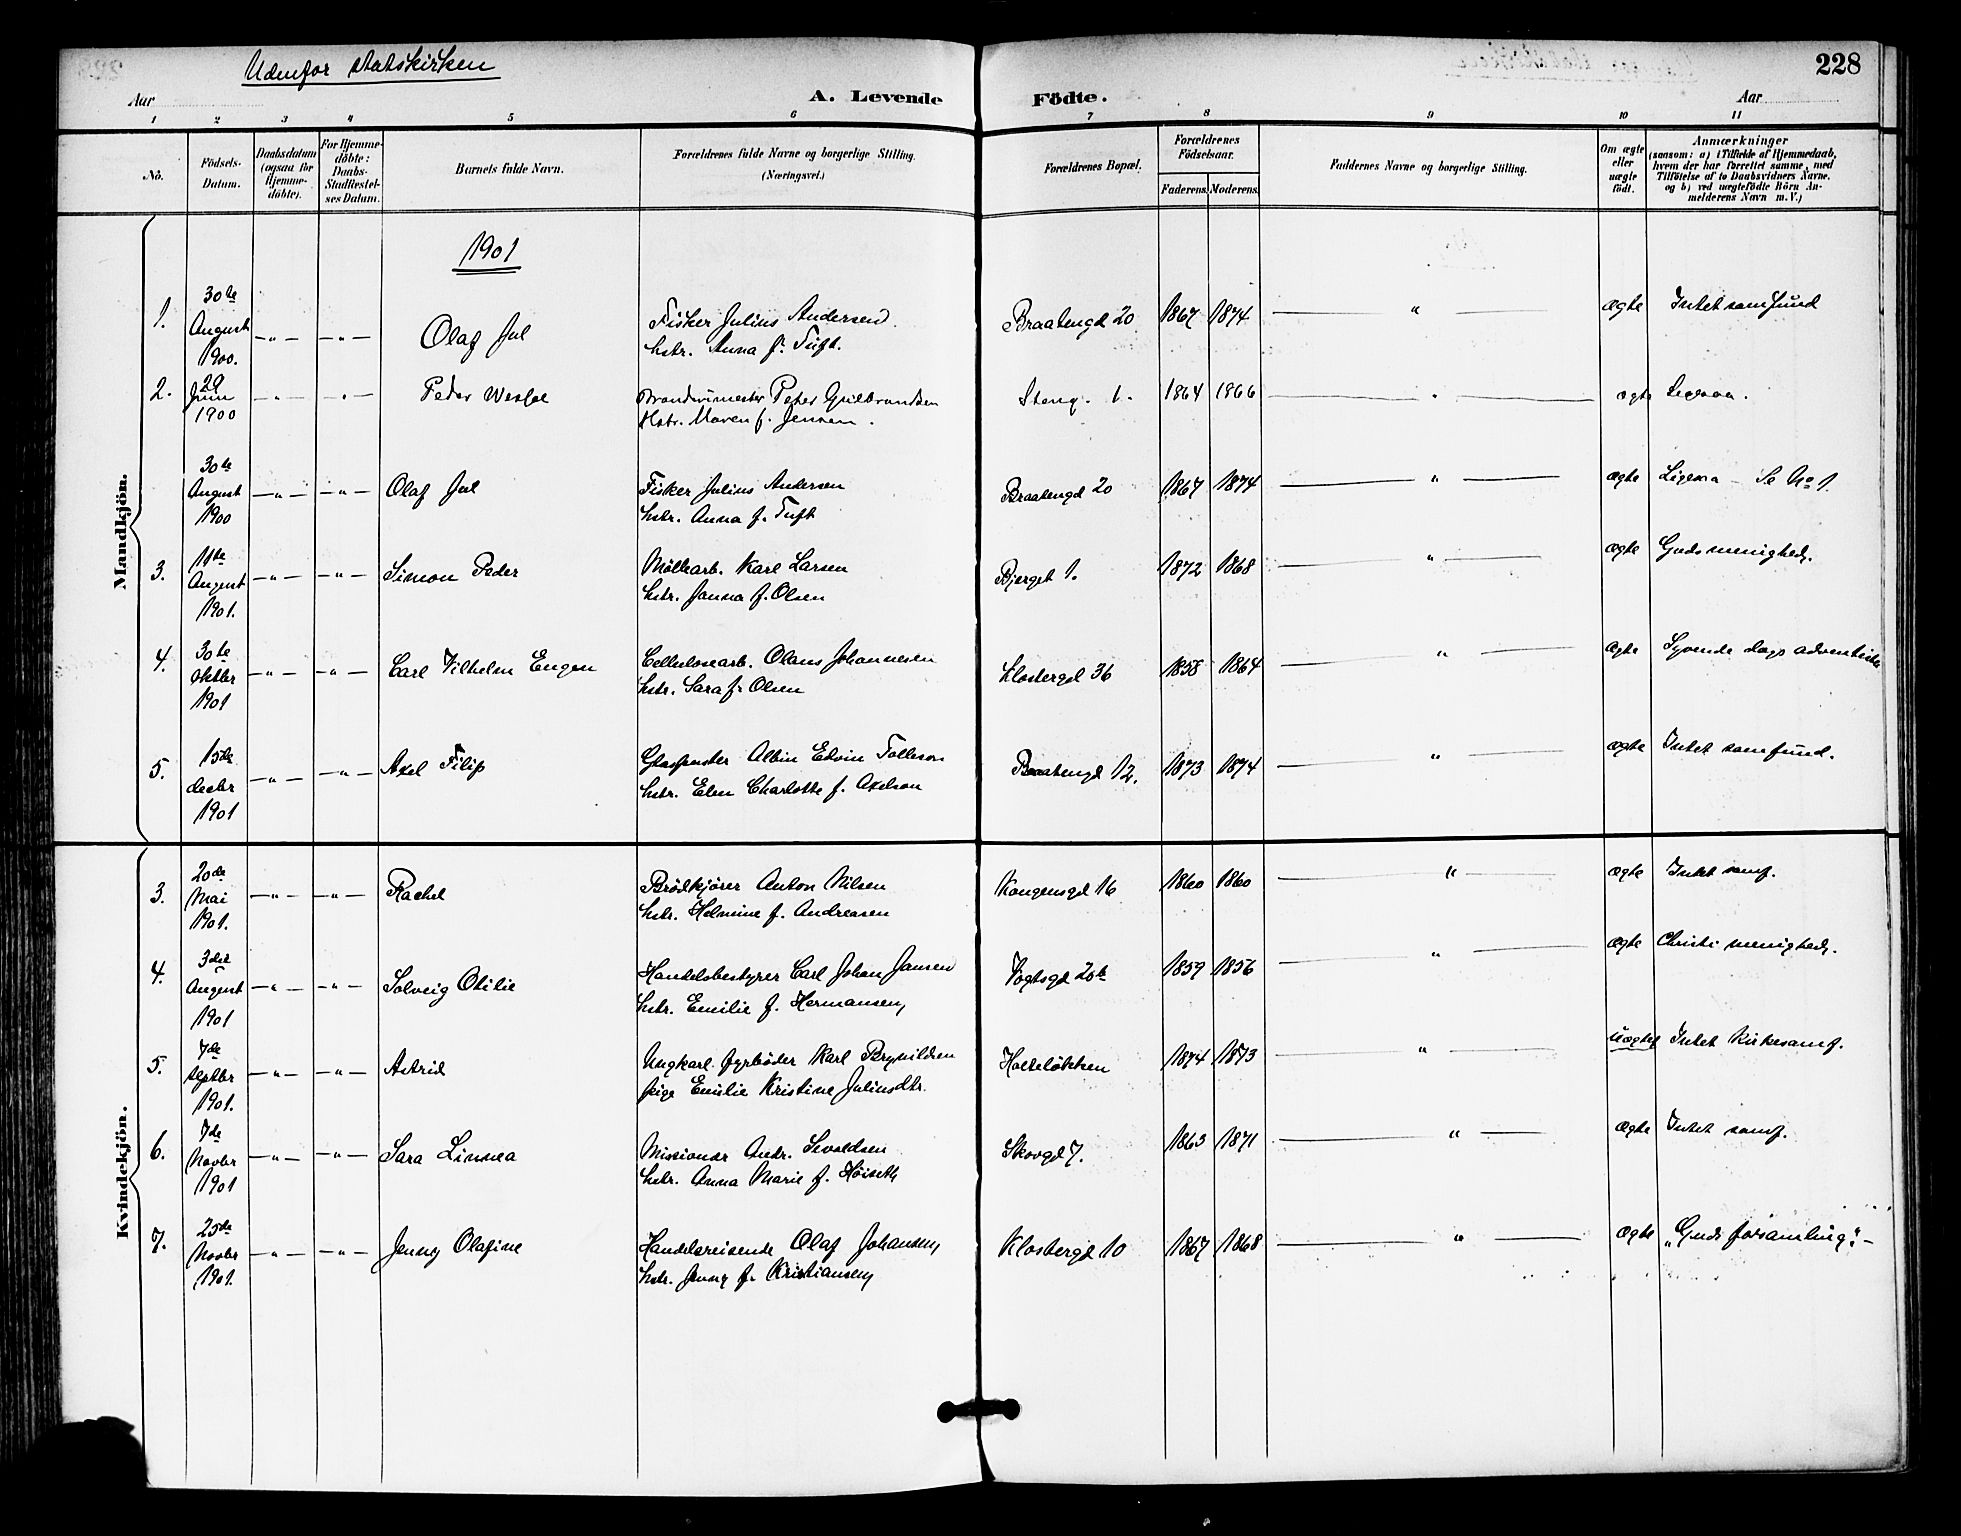 Udenfor statskirken
228
Aar
A. Levende Födte.
Aar
1 2 3 4 5 6 7 8 9 10 11
No.
Födsels-Datum.
Daabsdatum (ogsaa for Hjemme-döbte).
For Hjemme-döbte: Daabs-Stadfæstel-ses Datum.
Barnets fulde Navn.
Forældrenes fulde Navne og borgerlige Stilling.
(Næringsvei.)
Forældrenes Bopæl.
Forældrenes Födselsaar.
Faderens. Moderens.
Faddernes Navne og borgerlige Stilling.
Om ægte eller uægte födt.
Anmærkninger
(saasom: a) i Tilfælde af Hjemmedaab, hvem der har forrettet samme, med Tilföielse af to Daabsvidners Navne, og b) ved uægtefödte Börn An-melderens Navn m.V.)
1901
Mandkjön.
1. 30te August 1900. — " — — " — Olaf Jul Fisker Julius Andersen hstr. Anna f. Tuft. Braatengd 20 1867 1874 — " — ægte Intet samfund
2. 29 Juni 1900 — " — — " — Peder Wessel Brandvimester Peter Gulbrandsen Hstr. Maren f. Jensen. Steng. 1. 1864 1866 — " — ægte
30te August 1900 — " — — " — Olaf Jul Fisker Julius Andersen hstr. Anna f. Tuft Braatengd 20 1867 1874 — " — ægte Ligesaa — Se No 1.
3. 11te August 1901. — " — — " — Simon Peder Möllearb. Karl Larsen hstr. Janna f. Olsen Bjerget 1. 1872 1868 — " — ægte Guds menighed.
4. 30te oktbr 1901 — " — — " — Carl Vilhelm Eugen Cellulosearb. Olaus Johannesen hstr. Sara f. Olsen Klostergd 36 1858 1864 — " — ægte Syvende dags adventiste
5. 15de decbr 1901 — " — — " — Axel Filip Glaspuster Albin Edvin Tolleson hstr. Elen Charlotte f. Axelson Braatengd 12. 1873 1874 — " — ægte Intet samfund.
Kvindekjön.
3. 20de Mai 1901. — " — — " — Rachel Brödkjörer Anton Nilsen hstr. Helmine f. Andreasen Kongensgd 16 1860 1860 — " — ægte Intet samf.
4. 3die August 1901 — " — — " — Solveig Otilie Handelsbestyrer Carl Johan Jansen hstr. Emilie f. Hermansen Vogtsgd 20b 1859 1856 — " — ægte Christi menighed.
5. 7de septbr 1901. — " — — " — Astrid Ungkarl fyrböder Karl Brynildsen pige Emilie Kristine Juliusdtr. Holtelökken 1874 1873 — " — uægte Intet Kirkesamf.
6. 7de Novbr 1901 — " — — " — Sara Linnea Missionær Andr. Sivaldsen hstr. Anna Marie f. Höiseth Skovgd 7. 1863 1871 — " — ægte Intet samf.
7. 25de Novbr 1901. — " — — " — Jenny Olafine Handelsreisende Olaf Johansen hstr. Jenny f. Kristiansen Klostergd 10 1867 1868 — " — ægte „Guds forsamling". —